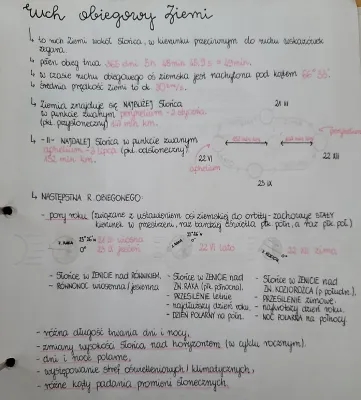 ruch obiegowy Ziemi
↳ to ruch Ziemi wokół Słońca, w kierunku przeciwnym do ruchu wskazówek
zegara.
↳ pełen obieg trwa 365 dni 5h 48min
↳ w czasie ruchu obiegowego oś ziemska jest nachylona pod kątem 66°33'
↳ średnia prędkość ziemi to ok. 30 km/s.
↳ Ziemia znajduje się NAJBLIŻEJ Słońca
w punkcie zwanym peryhelium
(pkt. przysłoneczny) 147 mln km.
↳ -||- NAJDALEJ Słońca w punkcie zwanym
aphelium (pkt. odsłoneczny)
152 mln km.
21 III
22 VI
22 XII
23 IX
peryhelium
aphelium
↳ NASTĘPSTWA R. OBIEGOWEGO:
- pory roku (związane z ustawieniem osi ziemskiej do orbity - zachowuje STAŁY
kierunek w przestrzeni, raz bardziej oświetla płk. płn., a raz płk. płd.)
21 III wiosna
23 IX jesień
22 VI lato
22 XII zima
- Słońce w ZENICIE nad RÓWNIKIEM,
- RÓWNONOC wiosenna/jesienna
- Słońce w ZENICIE nad
ZW. RAKA (płk. północna).
- PRZESILENIE letnie
- najdłuższy dzień roku.
- DZIEŃ POLARNY na półn.
- Słońce w ZENICIE nad
ZW. KOZIOROŻCA (płk. południe),
- PRZESILENIE zimowe.
- najkrótszy dzień roku.
- NOC POLARNA na północy
- różna długość trwania dni i nocy,
- zmiany wysokości Słońca nad horyzontem (w cyklu rocznym).
- dni i noce polarne,
- występowanie stref oświetleniowych / klimatycznych,
- różne kąty padania promieni słonecznych.